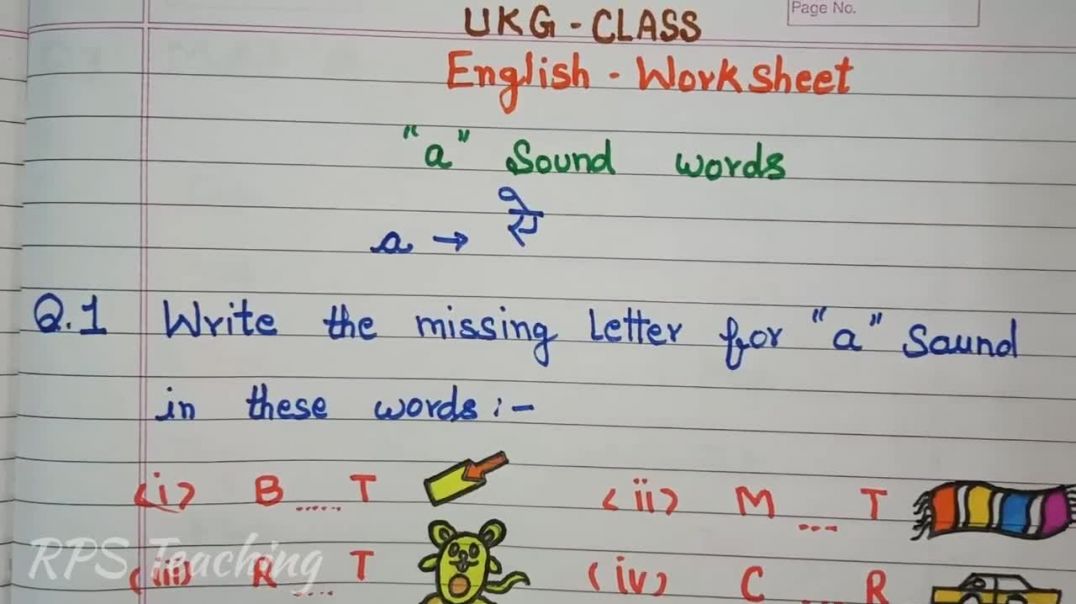 Page No.
UKG - CLASS
English - Worksheet
"a" Sound words
a → ऐ
Q.1 Write the missing letter for "a" Saund
in these words :-
(i) B ..... T (ii) M ... T
(iii) R .... T (iv) C ... R
RPS Teaching